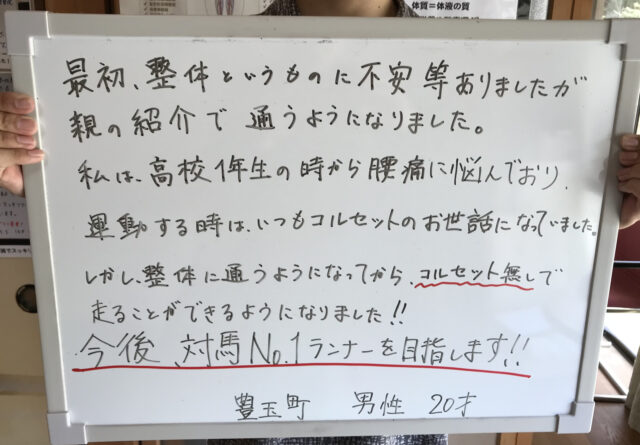 体質=体液の質
最初、整体というものに不安等ありましたが
親の紹介で通うようになりました。
私は、高校1年生の時から腰痛に悩んでおり、
運動する時は、いつもコルセットのお世話になっていました。
しかし、整体に通うようになってから、コルセット無しで
走ることができるようになりました!!
今後 対馬No.1ランナーを目指します!!
豊玉町 男性 20才